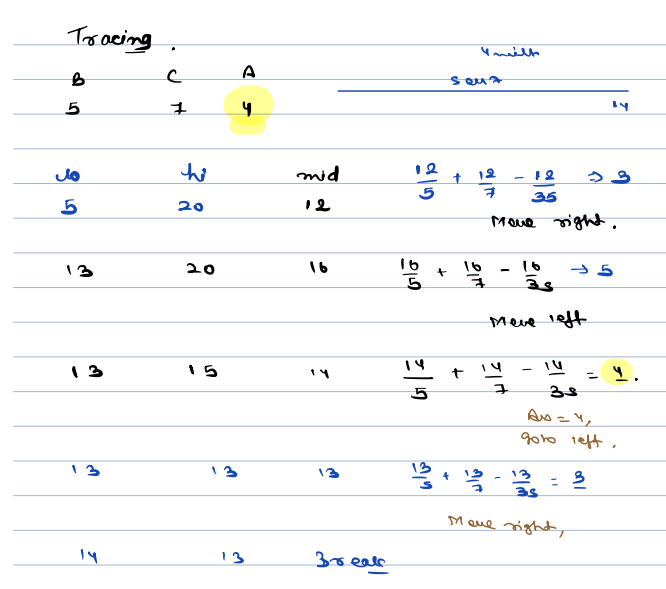 Tracing.
B C A
5 7 4
4 milts
5 our 7
14
lo hi mid
5 20 12
12/5 + 12/7 - 12/35 => 3
Move right.
13 20 16 16/5 + 16/7 - 16/35 → 5
Move left
13 15 14 14/5 + 14/7 - 14/35 = 4.
Ans = 4,
goto left.
13 13 13 13/5 + 13/7 - 13/35 = 3
Move right,
14 13 Break